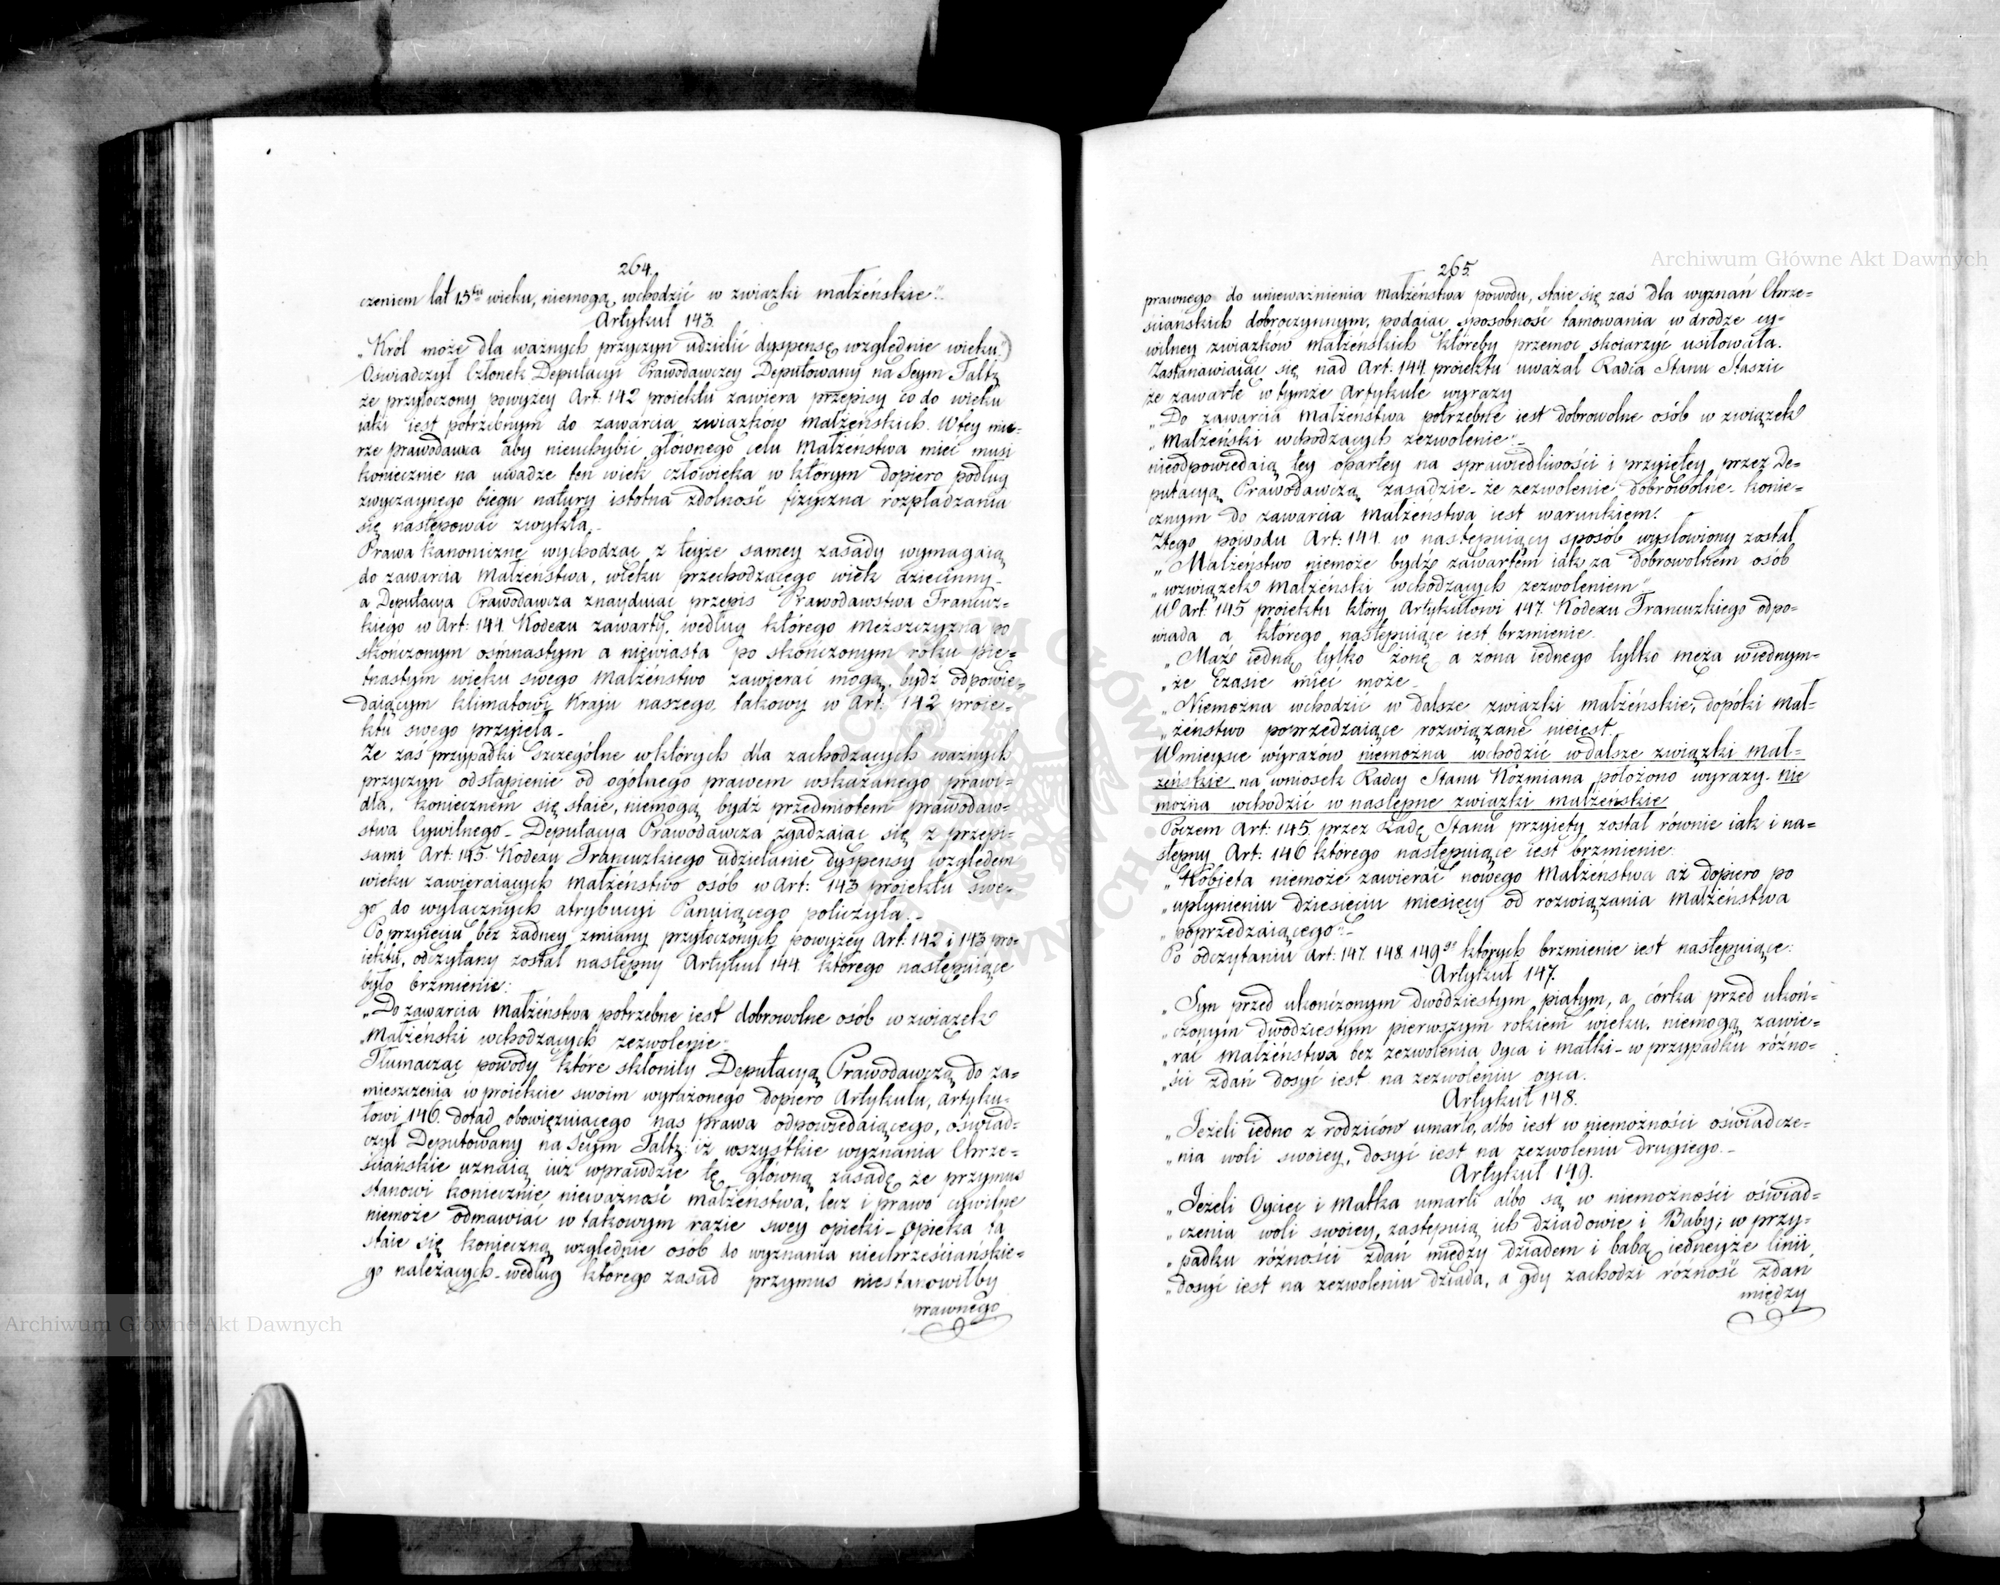 264.
czeniem lat 15tu wieku, niemogą wchodzić w związki małżeńskie".
Artykuł 143.
„Król może dla ważnych przyczyn udzielić dyspensę względnie wieku.")
Oświadczył Członek Deputacyi Prawodawczey Deputowany na Seym Faltz
że przytoczony powyżey Art: 142 proiektu zawiera przepisy co do wieku
iaki iest potrzebnym do zawarcia związków małżeńskich. W tey mie-
rze prawodawca aby nieuchybić głównego celu Małżeństwa mieć musi
koniecznie na uwadze ten wiek człowieka w którym dopiero podług
zwyczaynego biegu natury istotna zdolność fizyczna rozpładzania
się następować zwykła.-
Prawa kanoniczne wychodząc z teyże samey zasady wymagaią
do zawarcia Małżeństwa, wieku przechodzącego wiek dziecinny-
a Deputacya Prawodawcza znayduiąc przepis Prawodawstwa Francuz-
kiego w Art: 144 Kodexu zawarty, według którego Męższczyzna po
skończonym ośmnastym a niewiasta po skończonym roku pię-
tnastym wieku swego Małżeństwo zawierać mogą, bydź odpowie-
daiącym klimatowi Kraju naszego takowy w Art: 142 proie-
ktu swego przyięła.-
Że zaś przypadki szczególne w których dla zachodzących ważnych
przyczyn odstąpienie od ogólnego prawem wskazanego prawi-
dła, koniecznem się staie, niemogą bydź przedmiotem prawodaw-
stwa Cywilnego- Deputacya Prawodawcza zgadzaiąc się z przepi-
sami Art: 145. Kodexu Francuzkiego udzielanie dyspensy względem
wieku zawieraiących małżeństwo osób w Art: 143 proiektu swe-
go do wyłącznych atrybucyi Panuiącego policzyła.-
Po przyięciu bez żadney zmiany przytoczonych powyżey Art: 142 i 143 pro-
iektu, odczytany został następny Artykuł 144. którego następuiące
było brzmienie:
„Do zawarcia Małżeństwa potrzebne iest dobrowolne osób w związek
„Małżeński wchodzących zezwolenie".
Tłumacząc powody które skłoniły Deputacyą Prawodawczą do za-
mieszczenia w proiekcie swoim wyrażonego dopiero Artykułu, Artyku-
łowi 146. dotąd obowięzuiącego nas prawa odpowiedaiącego, oświad-
czył Deputowany na Seym Faltz: iż wszystkie wyznania Chrze-
ściańskie uznaią iuż wprawdzie tę główną zasadę że przymus
stanowi koniecznie nieważność małżeństwa, lecz i prawo cywilne
niemoże odmawiać w takowym razie swey opieki- Opieka ta
staie się konieczną względnie osób do wyznania niechrześciańskie-
go należących- według którego zasad przymus niestanowiłby
prawnego
265.
prawnego do unieważnienia Małżeństwa powodu, staie się zaś dla wyznań Chrze-
ściańskich dobroczynnym, podaiąc sposobność tamowania w drodze cy-
wilney związków Małżeńskich któreby przemoc skoiarzyć usiłowała.
Zastanawiaiąc się nad Art: 144 proiektu uważał Radca Stanu Staszic
że zawarte w tymże Artykule wyrazy
„Do zawarcia Małżeństwa potrzebne iest dobrowolne osób w związek
„Małżeński wchodzących zezwolenie".-
nieodpowiedaią tey opartey na sprawiedliwości i przyiętey przez De-
putacyą Prawodawczą zasadzie- że zezwolenie dobrowolne konie-
cznym do zawarcia Małżeństwa iest warunkiem.
Z tego powodu Art: 144 w następuiący sposób wysłowiony został
„Małżeństwo niemoże bydź zawartem iak za dobrowolnem osób
„w związek Małżeński wchodzących zezwoleniem".
W Art: 145 proiektu który Artykułowi 147. Kodexu Francuzkiego odpo-
wiada a którego następuiące iest brzmienie.
„Mąż iedną tylko żonę a żona iednego tylko męża w iednym-
„że czasie mieć może.
„Niemożna wchodzić w dalsze związki małżeńskie, dopóki mał-
„żeństwo poprzedzaiące rozwiązane nieiest.
W mieysce wyrazów niemożna wchodzić w dalsze związki mał-
żeńskie na wniosek Radcy Stanu Koźmiana położono wyrazy- nie
można wchodzić w następne związki małżeńskie
Poczem Art: 145. przez Radę Stanu przyięty został równie iak i na-
stępny Art: 146 którego następuiące iest brzmienie:
„Kobieta niemoże zawierać nowego Małżeństwa aż dopiero po
„upłynieniu dziesięciu miesięcy od rozwiązania Małżeństwa
„poprzedzaiącego".-
Po odczytaniu Art: 147. 148. 149go których brzmienie iest następuiące:
Artykuł 147.
„Syn przed ukończonym dwódziestym piątym, a córka przed ukoń-
„czonym dwudziestym pierwszym rokiem wieku, niemogą zawie-
„rać Małżeństwa bez zezwolenia Oyca i Matki- w przypadku różno-
„ści zdań dosyć iest na zezwoleniu oyca.
Artykuł 148.
„Jeżeli iedno z rodziców umarło, albo iest w niemożności oświadcze-
„nia woli swoiey, dosyć iest na zezwoleniu drugiego.-
Artykuł 149.
„Jeżeli Oyciec i Matka umarli albo są w niemożności oświad-
„czenia woli swoiey, zastępuią ich dziadowie i Baby; w przy-
„padku różności zdań między dziadem i babą iedneyże linii,
„dosyć iest na zezwoleniu dziada, a gdy zachodzi różność zdań
między
Archiwum Główne Akt Dawnych
Archiwum Główne Akt Dawnych